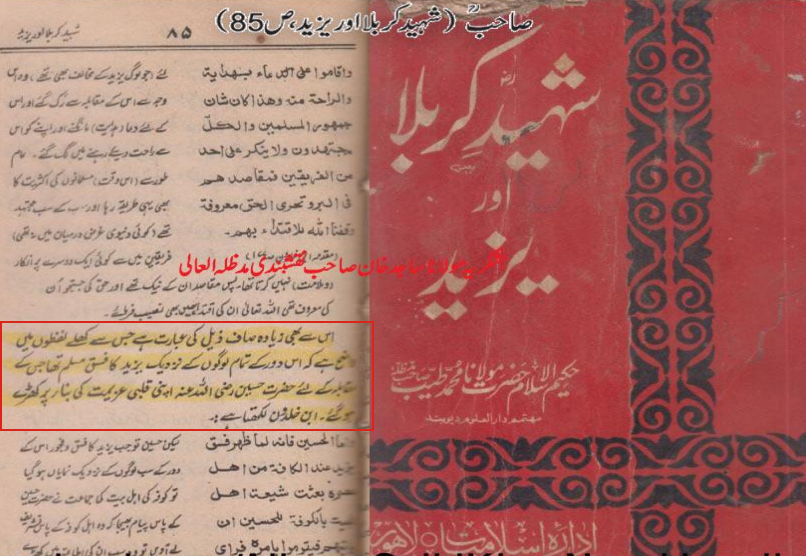 صاحبؒ (شہیدِ کربلا اور یزید، ص 85)
شہید کربلا اور یزید
۸۵
واقاموا علی الدعاء بهدایة
والراحة منه وهذا کان شان
جمهور المسلمین والکل
مجتهدون ولا ینکر علی احد
من الفریقین فمقاصدهم
فی البر و تحری الحق معروفة
وفقنا الله للاقتداء بهم۔
لئے (جو لوگ یزید کے مخالف بھی تھے) وہ اس
وجہ سے اس کے مقابلہ سے رک گئے اور اس
کے لئے دعا (ہدایت) مانگنے اور اپنے کو اس
سے راحت دیئے رہنے میں لگ گئے۔ عام
طور سے (اس وقت) مسلمانوں کی اکثریت کا
بھی یہی طریقہ رہا اور سب کے سب مجتہد
تھے (کوئی دنیوی غرض درمیان میں نہ تھی)
فریقین میں سے کوئی ایک دوسرے پر انکار
(و ملامت) نہیں کرتا تھا پس مقاصد ان کے نیک تھے اور حق کی جستجو ان
کی معروف تھی اللہ تعالیٰ ان کی اقتدا ہمیں بھی نصیب فرمائے۔
مولانا ساجد خان صاحب نقشبندی مدظلہ العالی
اس سے بھی زیادہ صاف ذیل کی عبارت ہے جس سے کھلے لفظوں میں
واضح ہے کہ اس دور کے تمام لوگوں کے نزدیک یزید کا فسق مسلم تھا جس کے
مقابلہ کے لئے حضرت حسین رضی اللہ عنہ اپنی قلبی عزیمت کی بناء پر کھڑے
ہو گئے۔ ابن خلدون لکھتا ہے:۔
واما الحسین فانه لما ظهر فسق
یزید عند الکافة من اهل
عصره بعثت شیعة اهل
البیت بالکوفة للحسین ان
لیکن حسین تو جب یزید کا فسق و فجور اس کے
دور کے سب لوگوں کے نزدیک نمایاں ہو گیا
تو کوفہ کی اہل بیت کی جماعت نے حضرت حسین
کے پاس پیام بھیجا کہ وہ اہل کوفہ کے پاس تشریف
شہیدِ کربلا
اور
یزید
حکیم الاسلام حضرت مولانا محمد طیب صاحب
مہتمم دارالعلوم دیوبند
ادارہ اسلامیات لاہور